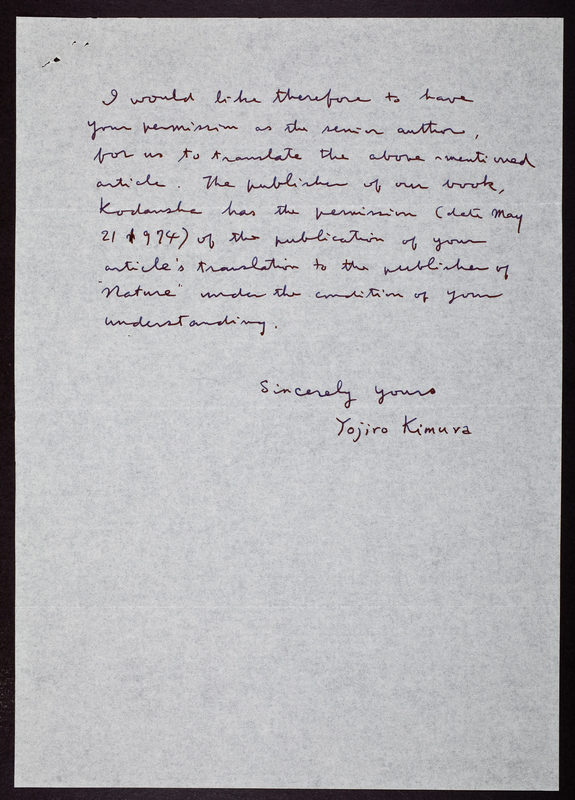 I would like therefore to have
your permission as the senior author,
for us to translate the above mentioned
article. The publisher of our book,
Kodansha has the permission (date May
21 1974) of the publication of your
article's translation to the publisher of
"Nature" under the condition of your
understanding.
Sincerely yours
Yojiro Kimura